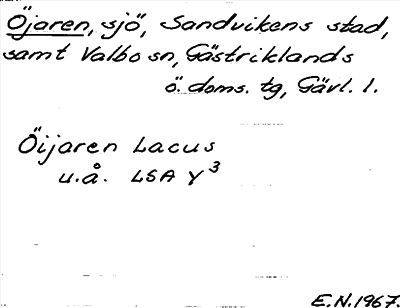 Öjaren, sjö, Sandvikens stad,
samt Valbo sn, Gästriklands
ö. doms. tg, Gävl. l.
Öijaren Lacus
u.å. LSA Y3
E.N. 1967.